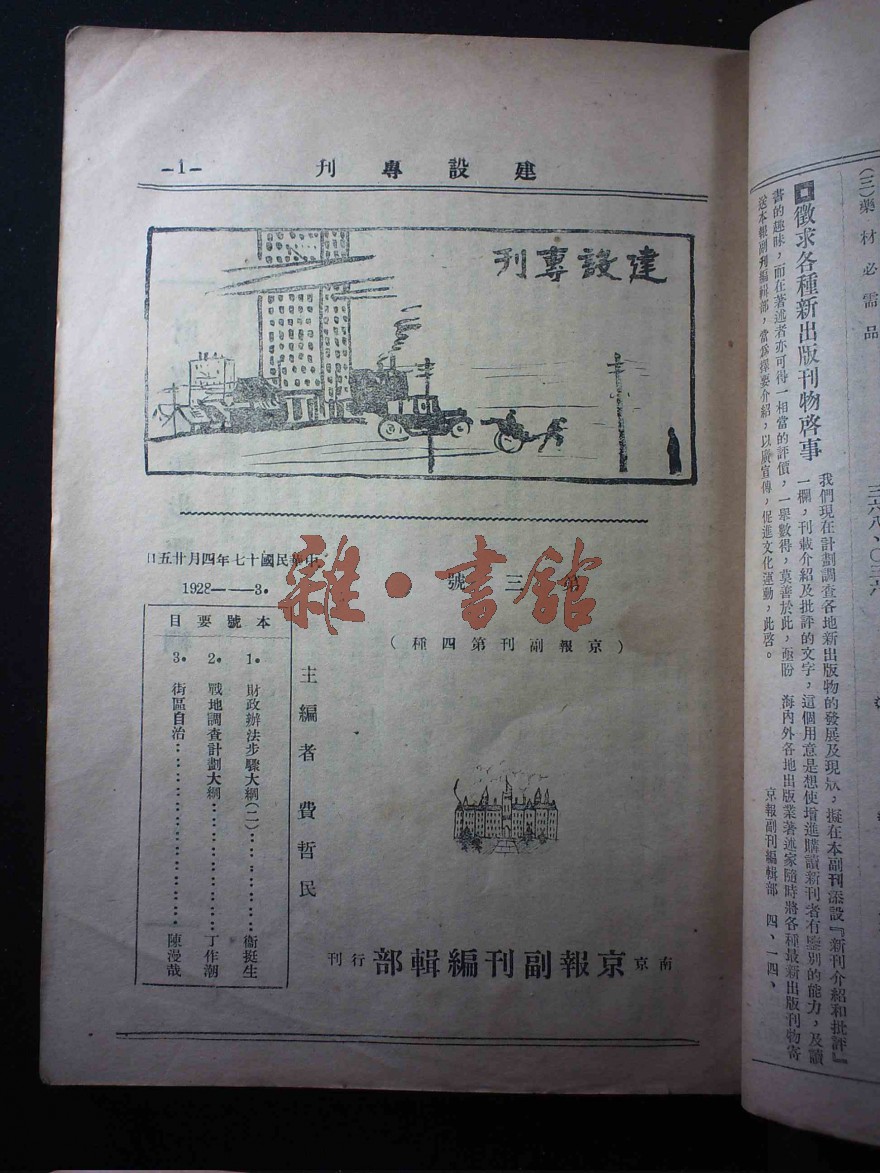 建設專刊 -1-
建設專刊
第三號
中華民國十七年四月廿五日
1928——3.
雜·書館
(京報副刊第四種)
主編者 費哲民
本號要目
1. 財政辦法步驟大綱(二)…………衞挺生
2. 戰地調查計劃大綱…………丁作潮
3. 街區自治…………陳漫哉
南京京報副刊編輯部行刊
(三)藥材必需品
徵求各種新出版刊物啓事
我們現在計劃調查各地新出版物的發展及現狀,擬在本副刊添設『新刊介紹和批評』
一欄,刊載介紹及批評的文字,這個用意是想使增進購讀新刊者有鑒別的能力,及讀
書的趣味,而在著述者亦可得一相當的評價,一舉數得,莫善於此,亟盼 海內外各地出版業著述家隨時將各種最新出版刊物寄
送本報副刊編輯部,當爲擇要介紹,以廣宣傳,促進文化運動,此啓。
京報副刊編輯部 四、一四、